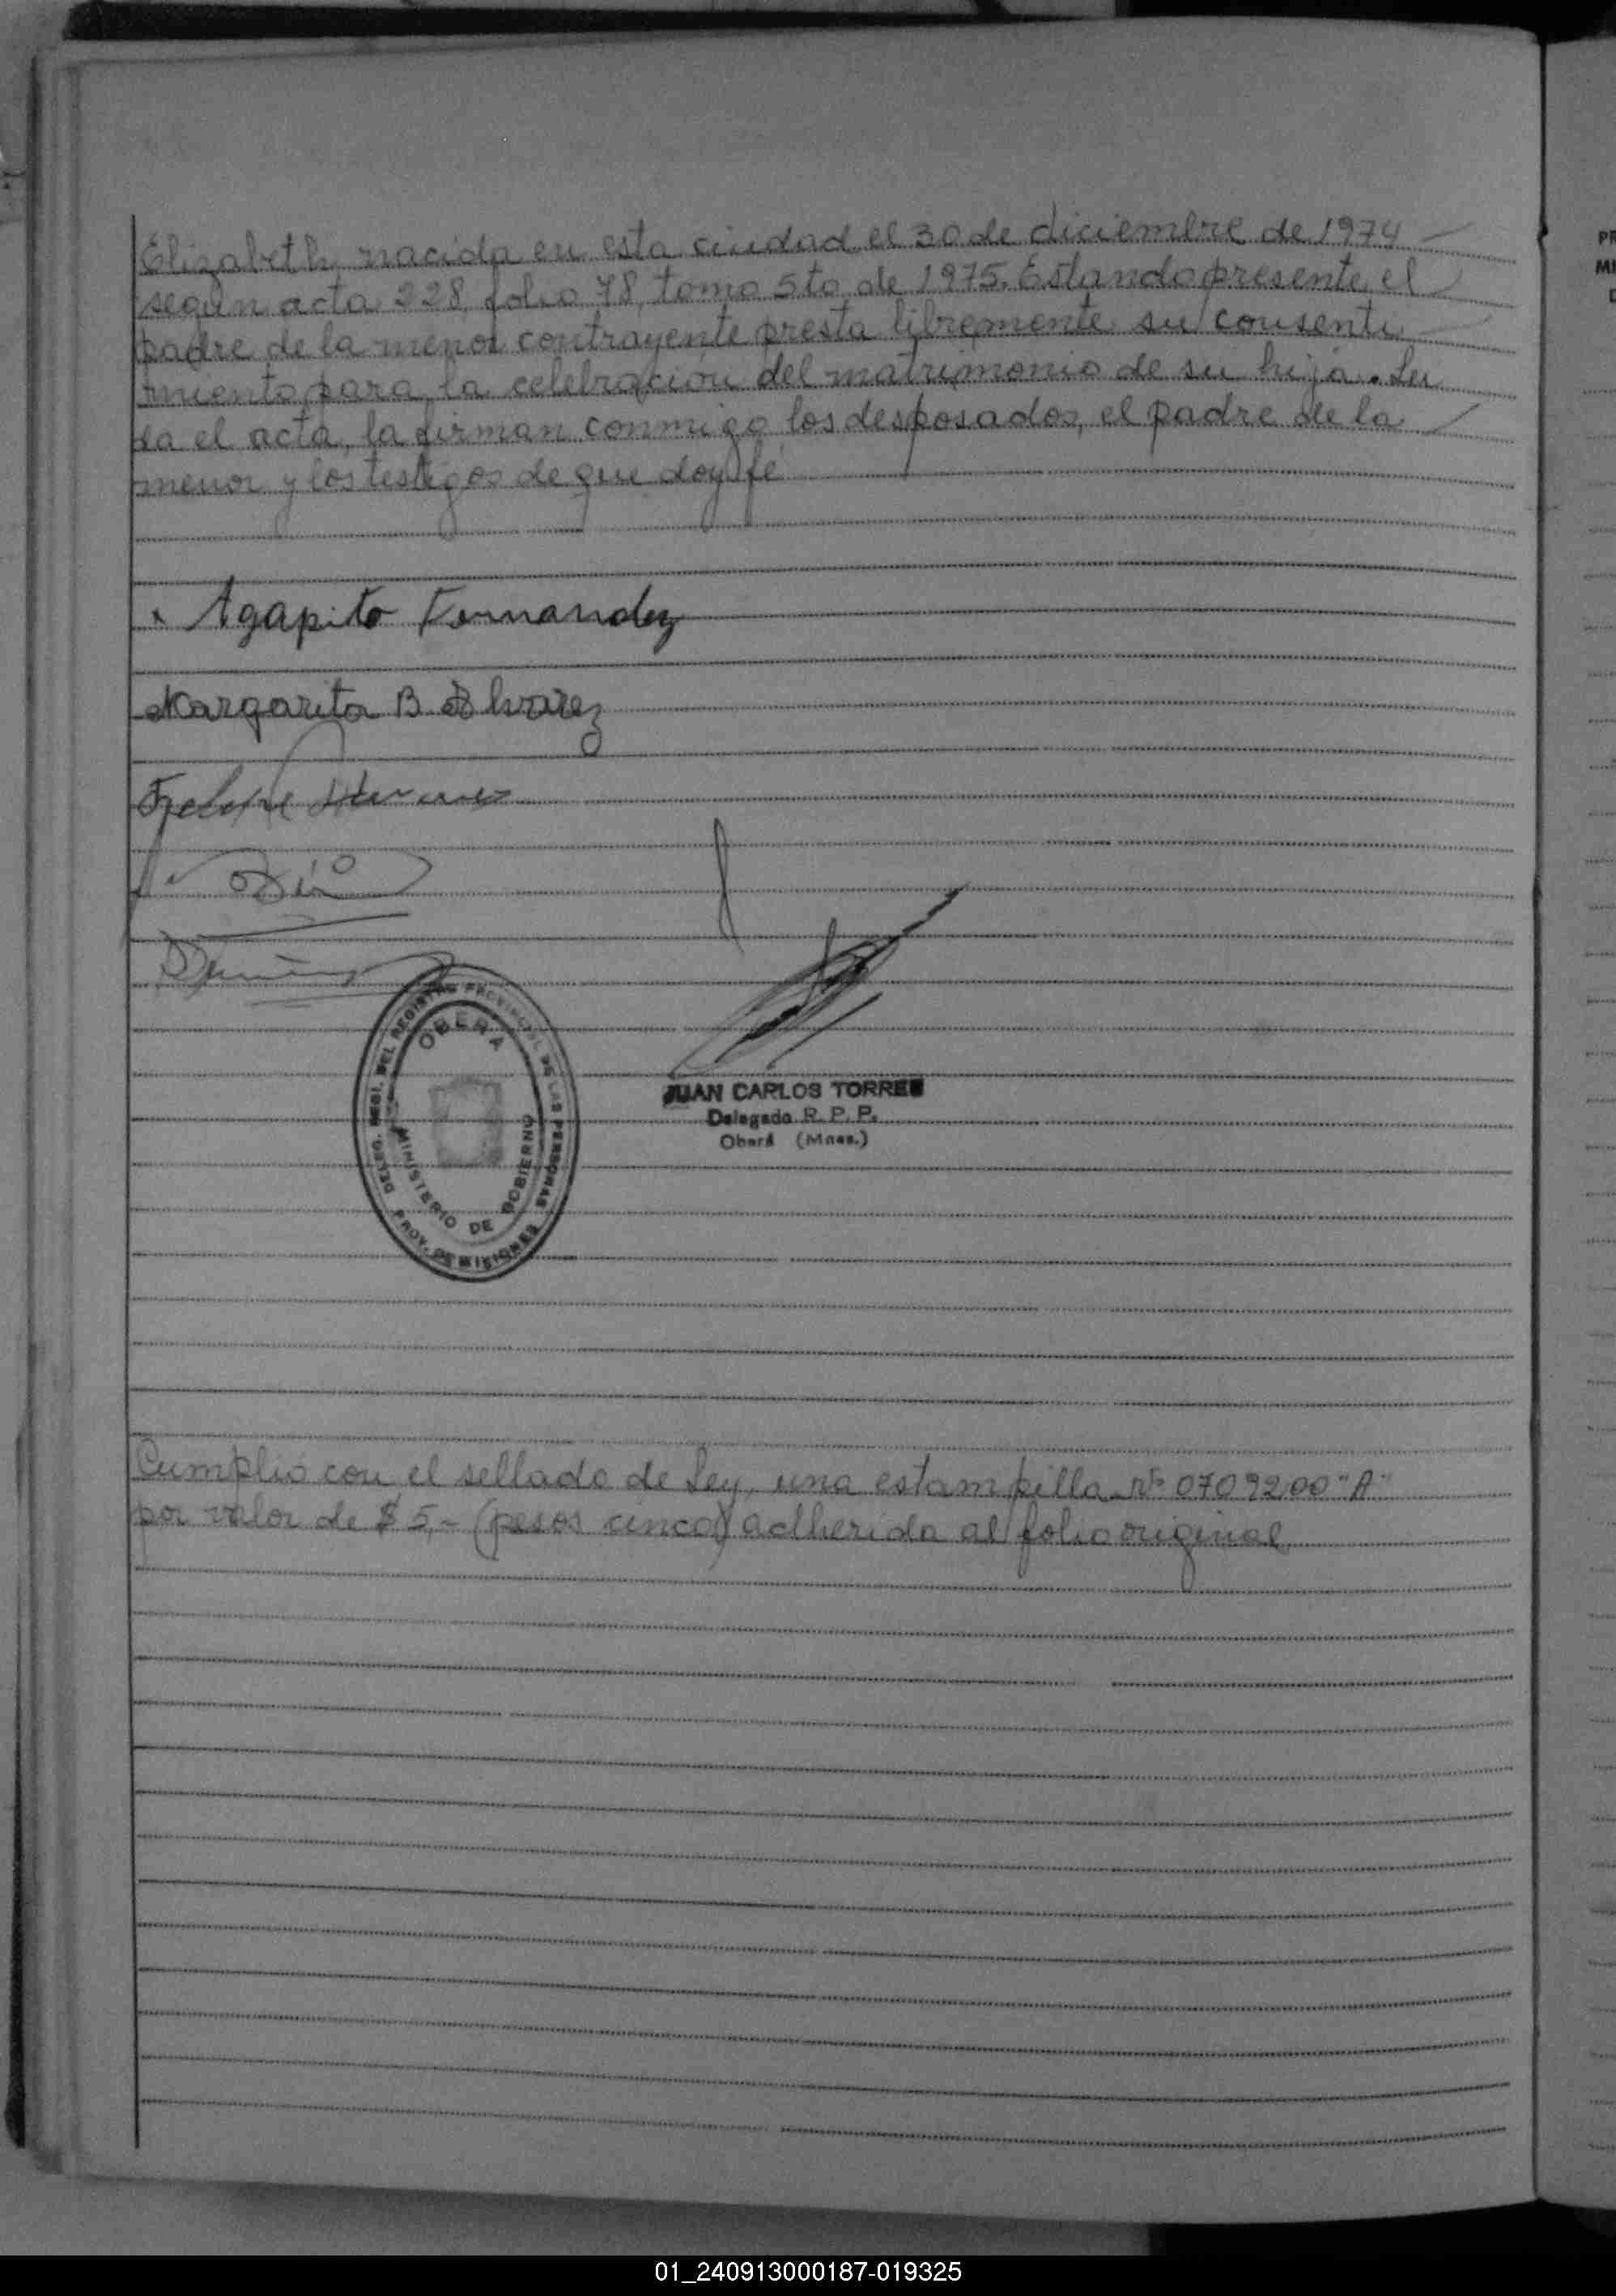 Elizabeth, nacida en esta ciudad el 30 de diciembre de 1974
según acta 228, folio 78, tomo 5to de 1975. Estando presente el
padre de la menor contrayente presta libremente su consenti
miento para la celebración del matrimonio de su hija. Lei
da el acta, la firman conmigo los desposados, el padre de la
menor y los testigos de que doy fé
Agapito Fernandez
Margarita B. Alvarez
OBERA
DELEG. DEL REGISTRO PROVINCIAL DE LAS PERSONAS
MINISTERIO DE GOBIERNO
PROV. DE MISIONES
JUAN CARLOS TORRES
Delegado R. P. P.
Oberá (Mnes.)
Cumplió con el sellado de Ley, una estampilla Nº 0709200 "A"
por valor de $ 5,- (pesos cinco) adherida al folio original
PR
MI
D
01_240913000187-019325